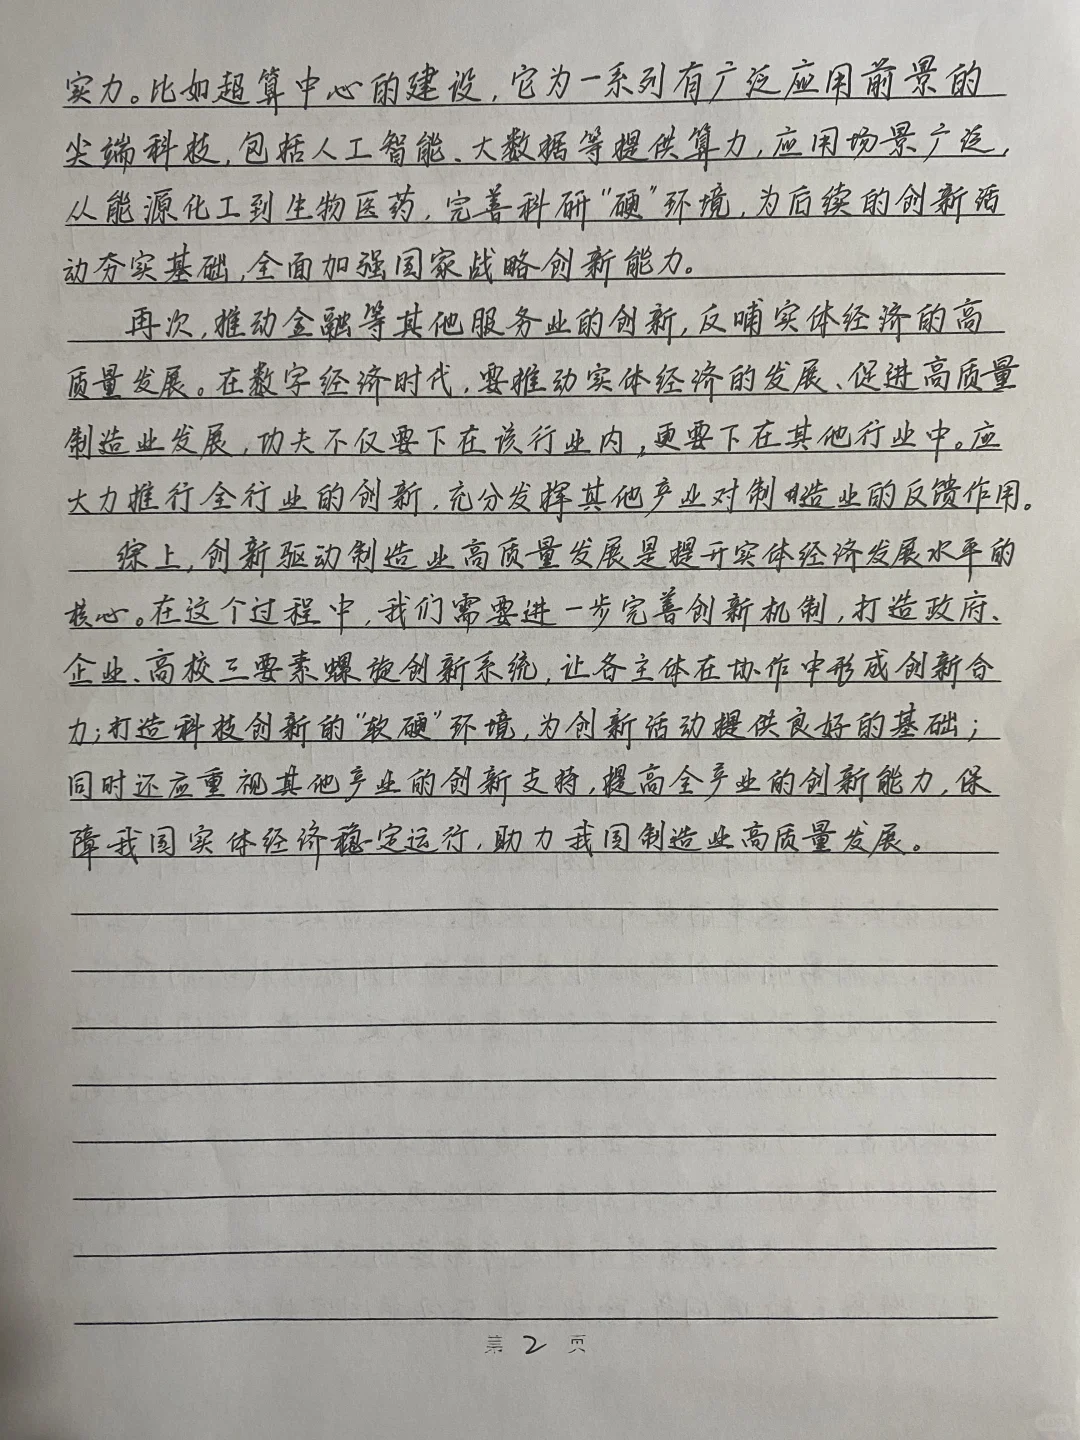 实力。比如超算中心的建设，它为一系列有广泛应用前景的
尖端科技，包括人工智能、大数据等提供算力，应用场景广泛，
从能源化工到生物医药，完善科研“硬”环境，为后续的创新活
动夯实基础，全面加强国家战略创新能力。
再次，推动金融等其他服务业的创新，反哺实体经济的高
质量发展。在数字经济时代，要推动实体经济的发展、促进高质量
制造业发展，功夫不仅要下在该行业内，更要下在其他行业中。应
大力推行全行业的创新，充分发挥其他产业对制造业的反馈作用。
综上，创新驱动制造业高质量发展是提升实体经济发展水平的
核心。在这个过程中，我们需要进一步完善创新机制，打造政府、
企业、高校三要素螺旋创新系统，让各主体在协作中形成创新合
力；打造科技创新的“软硬”环境，为创新活动提供良好的基础；
同时还应重视其他产业的创新支持，提高全产业的创新能力，保
障我国实体经济稳定运行，助力我国制造业高质量发展。
第 2 页